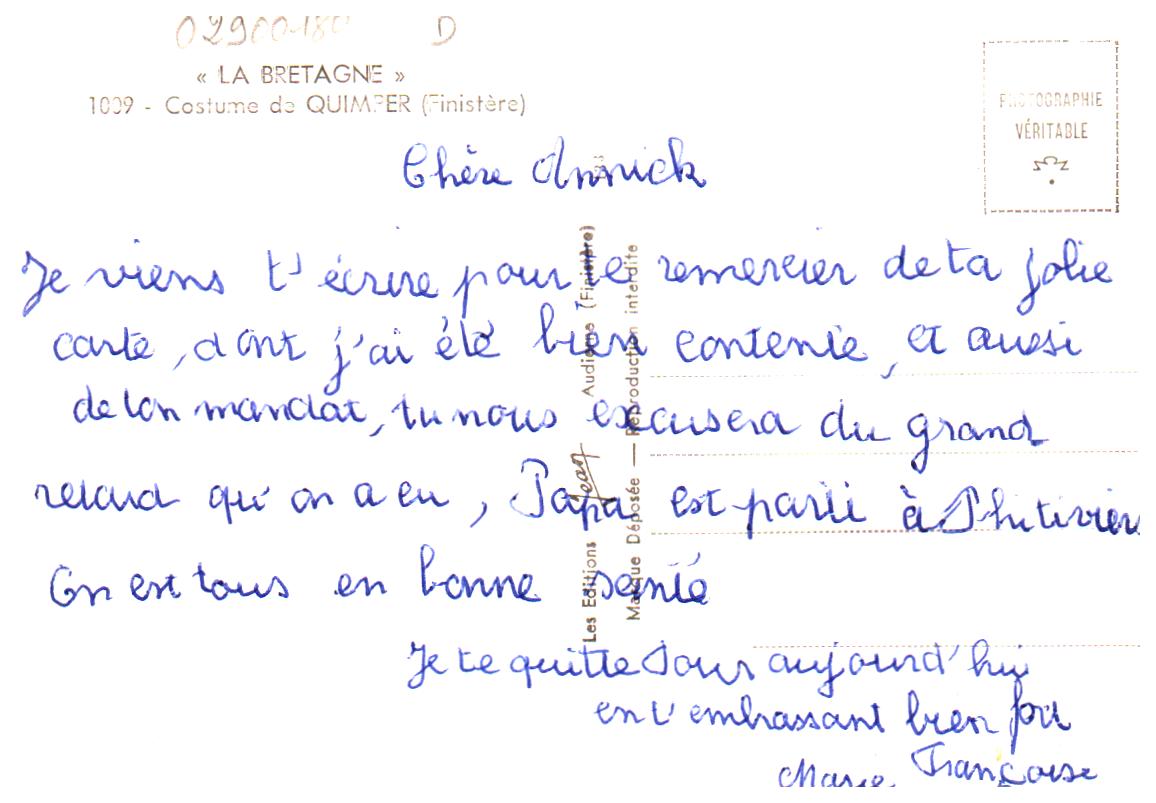 02900180 D
« LA BRETAGNE »
1009 - Costume de QUIMPER (Finistère)
PHOTOGRAPHIE
VÉRITABLE
Chère Annick
Je viens t'écrire pour te remercier de ta jolie
carte, dont j'ai été bien contente, et aussi
de ton mandat, tu nous excusera du grand
retard qu'on a eu, Papa est parti à Phitivier
On est tous en bonne santé
Je te quitte pour aujourd'hui
en t'embrassant bien fort
Marie Françoise
Les Editions Jean Audierne (Finistère)
Marque Déposée — Reproduction interdite